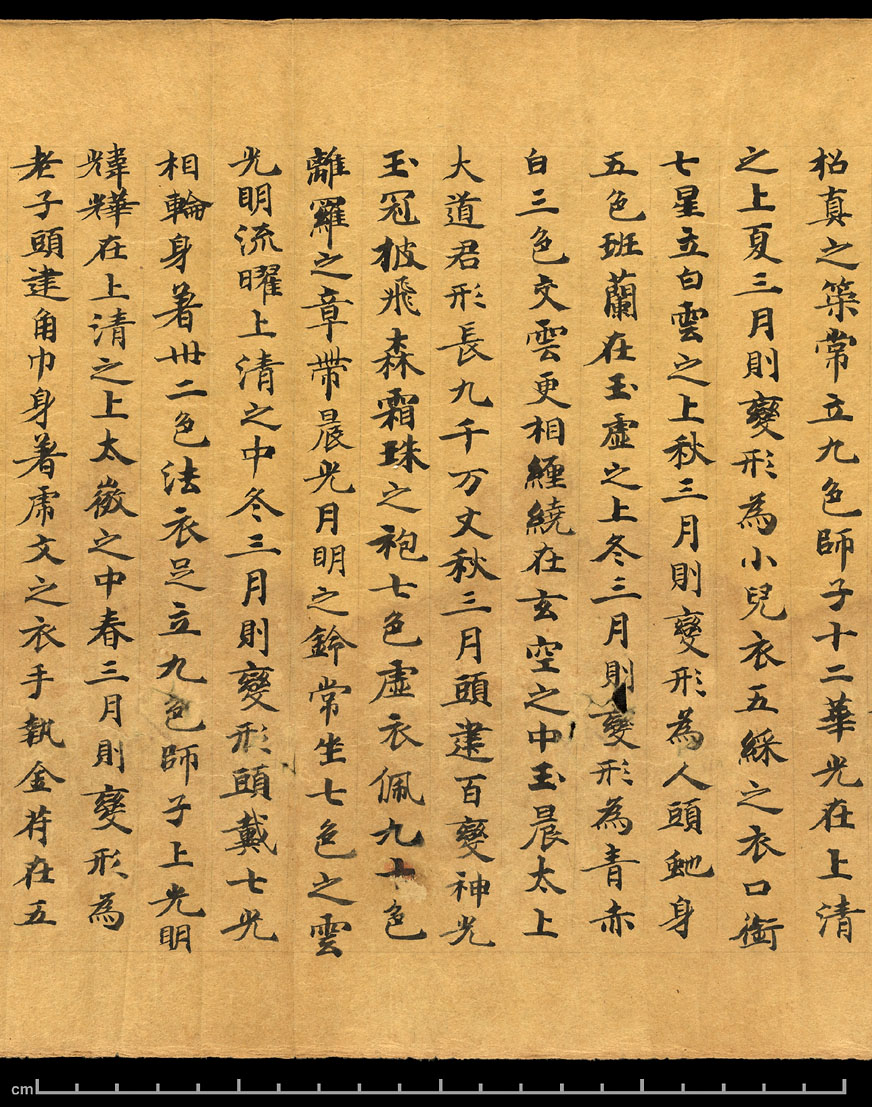 招真之策常立九色師子十二華光在上清
之上夏三月則變形為小兒衣五綵之衣口銜
七星立白雲之上秋三月則變形為人頭虵身
五色班蘭在玉虛之上冬三月則變形為青赤
白三色交雲更相纏繞在玄空之中玉晨太上
大道君形長九千万丈秋三月頭建百變神光
玉冠披飛森霜珠之袍七色虛衣佩九十色
離羅之章帶晨光月明之鈴常坐七色之雲
光明流曜上清之中冬三月則變形頭戴七光
相輪身著卅二色法衣足立九色師子上光明
煒燁在上清之上太微之中春三月則變形為
老子頭建角巾身著虎文之衣手執金苻在五
cm